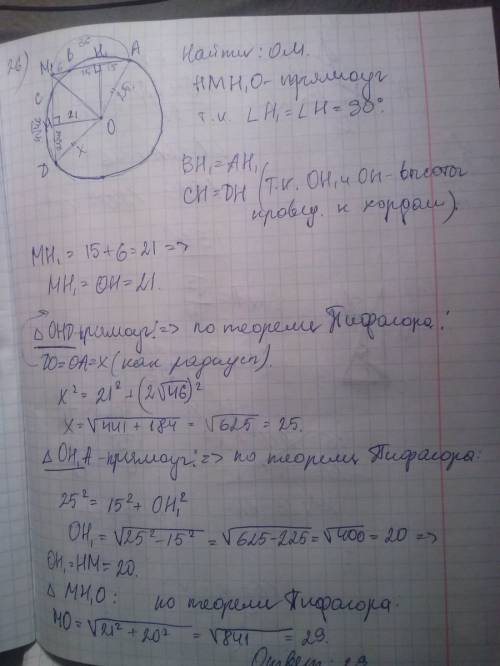 26)
36
M 6 B H₁ A
15 15
C
21
25
O
4√46
2√46
x
D
Найти: OM.
HMH₁O - прямоуг
т.к. ∠H₁ = ∠H = 90°.
BH₁ = AH₁
CH = DH (т.к. OH₁ и OH - высоты
провед. к хордам).
MH₁ = 15 + 6 = 21 =>
MH₁ = OH = 21.
△OHD - прямоуг. => по теореме Пифагора:
DO = OA = x (как радиусы).
x² = 21² + (2√46)²
x = √441 + 184 = √625 = 25.
△OH₁A - прямоуг. => по теореме Пифагора:
25² = 15² + OH₁²
OH₁ = √25² - 15² = √625 - 225 = √400 = 20 =>
OH₁ = HM = 20.
△ MH₁O: по теореме Пифагора.
MO = √21² + 20² = √841 = 29.
Ответ: 29